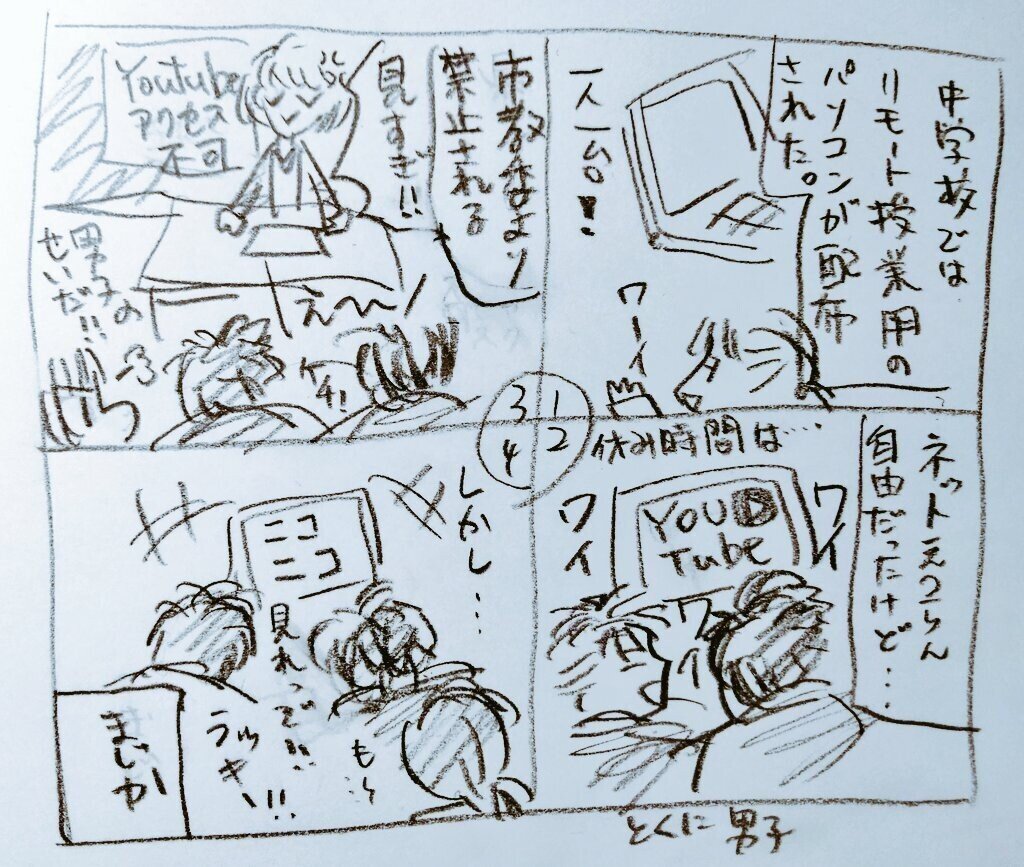 中学校では
リモート授業用の
パソコンが配布
された。
一人一台。!
ワーイ
1
2
3
4
ネットえつらん
自由だったけど…
休み時間は…
YOU
Tube
ワイ
ワイ
ワイ
とくに男子
市教委より
禁止される
見すぎ!!
Youtube
アクセス
不可
え〜〜
男子の
せいだ!!
しかし…
ニコ
ニコ
見れっぞ!!
ラッキー!!
まじか